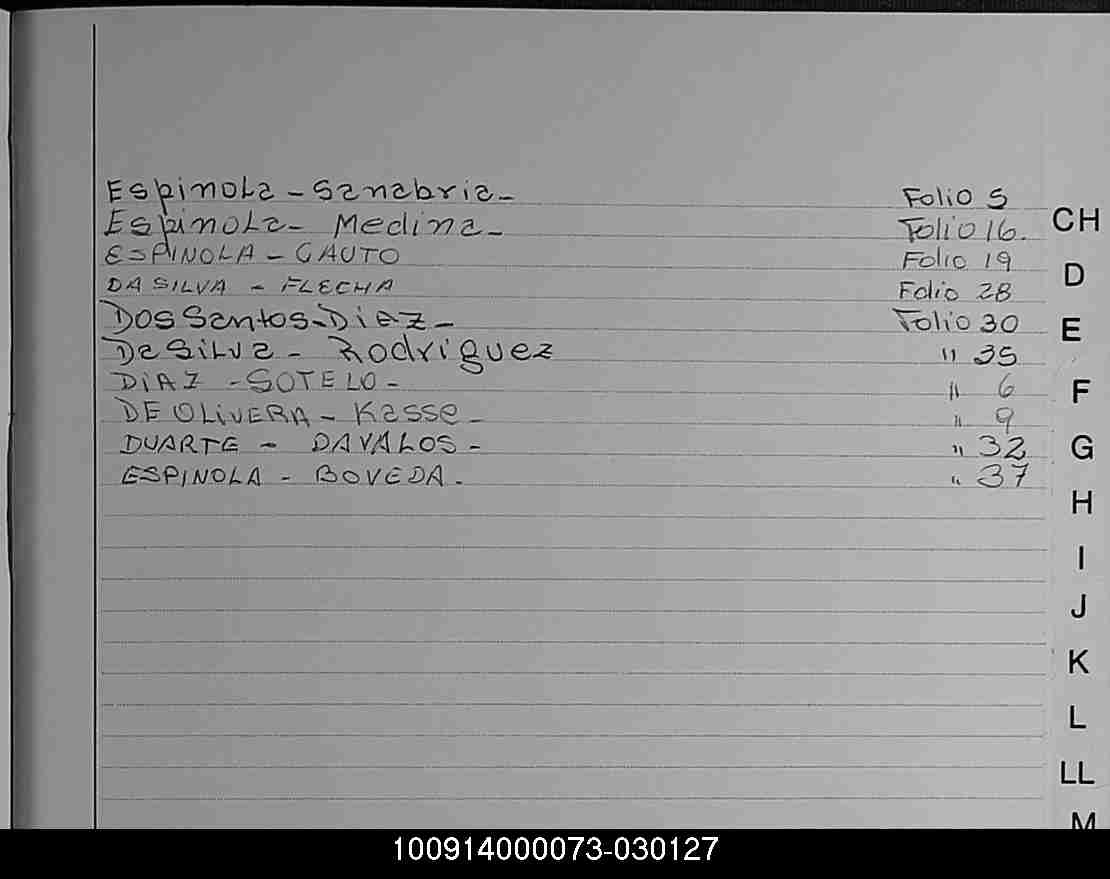 Espinola - Sanabria - Folio 5
Espinola - Medina - Folio 16.
ESPINOLA - GAUTO Folio 19
DA SILVA - FLECHA Folio 28
Dos Santos - Diaz - Folio 30
Da Silva - Rodriguez " 35
DIAZ - SOTELO - " 6
DE OLIVERA - Kasse - " 9
DUARTE - DAVALOS - " 32
ESPINOLA - BOVEDA. " 37
CH
D
E
F
G
H
I
J
K
L
LL
M
100914000073-030127